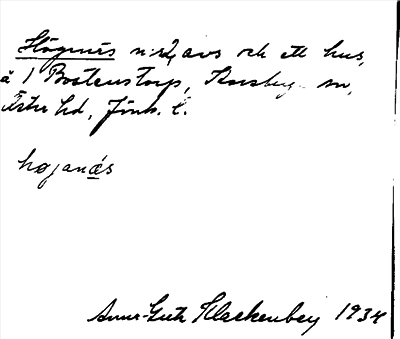 Högnäs nr 2, avs och ett hus,
å 1 Bostenstorp, Ansby sn,
Östra hd, Jönk. l.
höganäs
Anna-Greta Hackenberg 1934